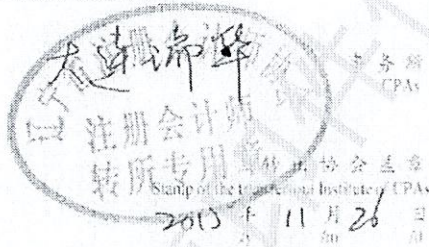 大连瑞华
事务所
CPAs
注册会计师
转所专用章
转出协会盖章
Stamp of the transfer-out Institute of CPAs
2013 年 11 月 26 日
/y /m /d